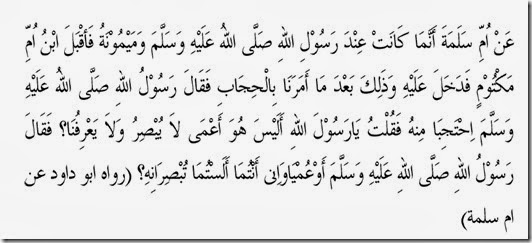 عَنْ اُمِّ سَلَمَةَ أَنَّمَا كَانَتْ عِنْدَ رَسُوْلِ اللهِ صَلَّى اللهُ عَلَيْهِ وَسَلَّمَ وَمَيْمُوْنَةُ فَأَقْبَلَ ابْنُ اُمِّ
مَكْتُوْمٍ فَدَخَلَ عَلَيْهِ وَذَلِكَ بَعْدَ مَا أَمَرَنَا بِالْحِجَابِ فَقَالَ رَسُوْلُ اللهِ صَلَّى اللهُ عَلَيْهِ
وَسَلَّمَ اِحْتَجِبَا مِنهُ فَقُلْتُ يَارَسُوْلَ اللهِ أَلَيْسَ هُوَ أَعْمَى لاَ يُبْصِرُ وَلاَ يَعْرِفُنَا؟ فَقَالَ
رَسُوْلُ اللهِ صَلَّى اللهِ عَلَيْهِ وَسَلَّمَ أَوْعُمْيَاوَاِنى أَنْتُمَا أَلَسْتُمَا تُبْصِرَانِهِ؟ (رواه ابو داود عن
ام سلمة)